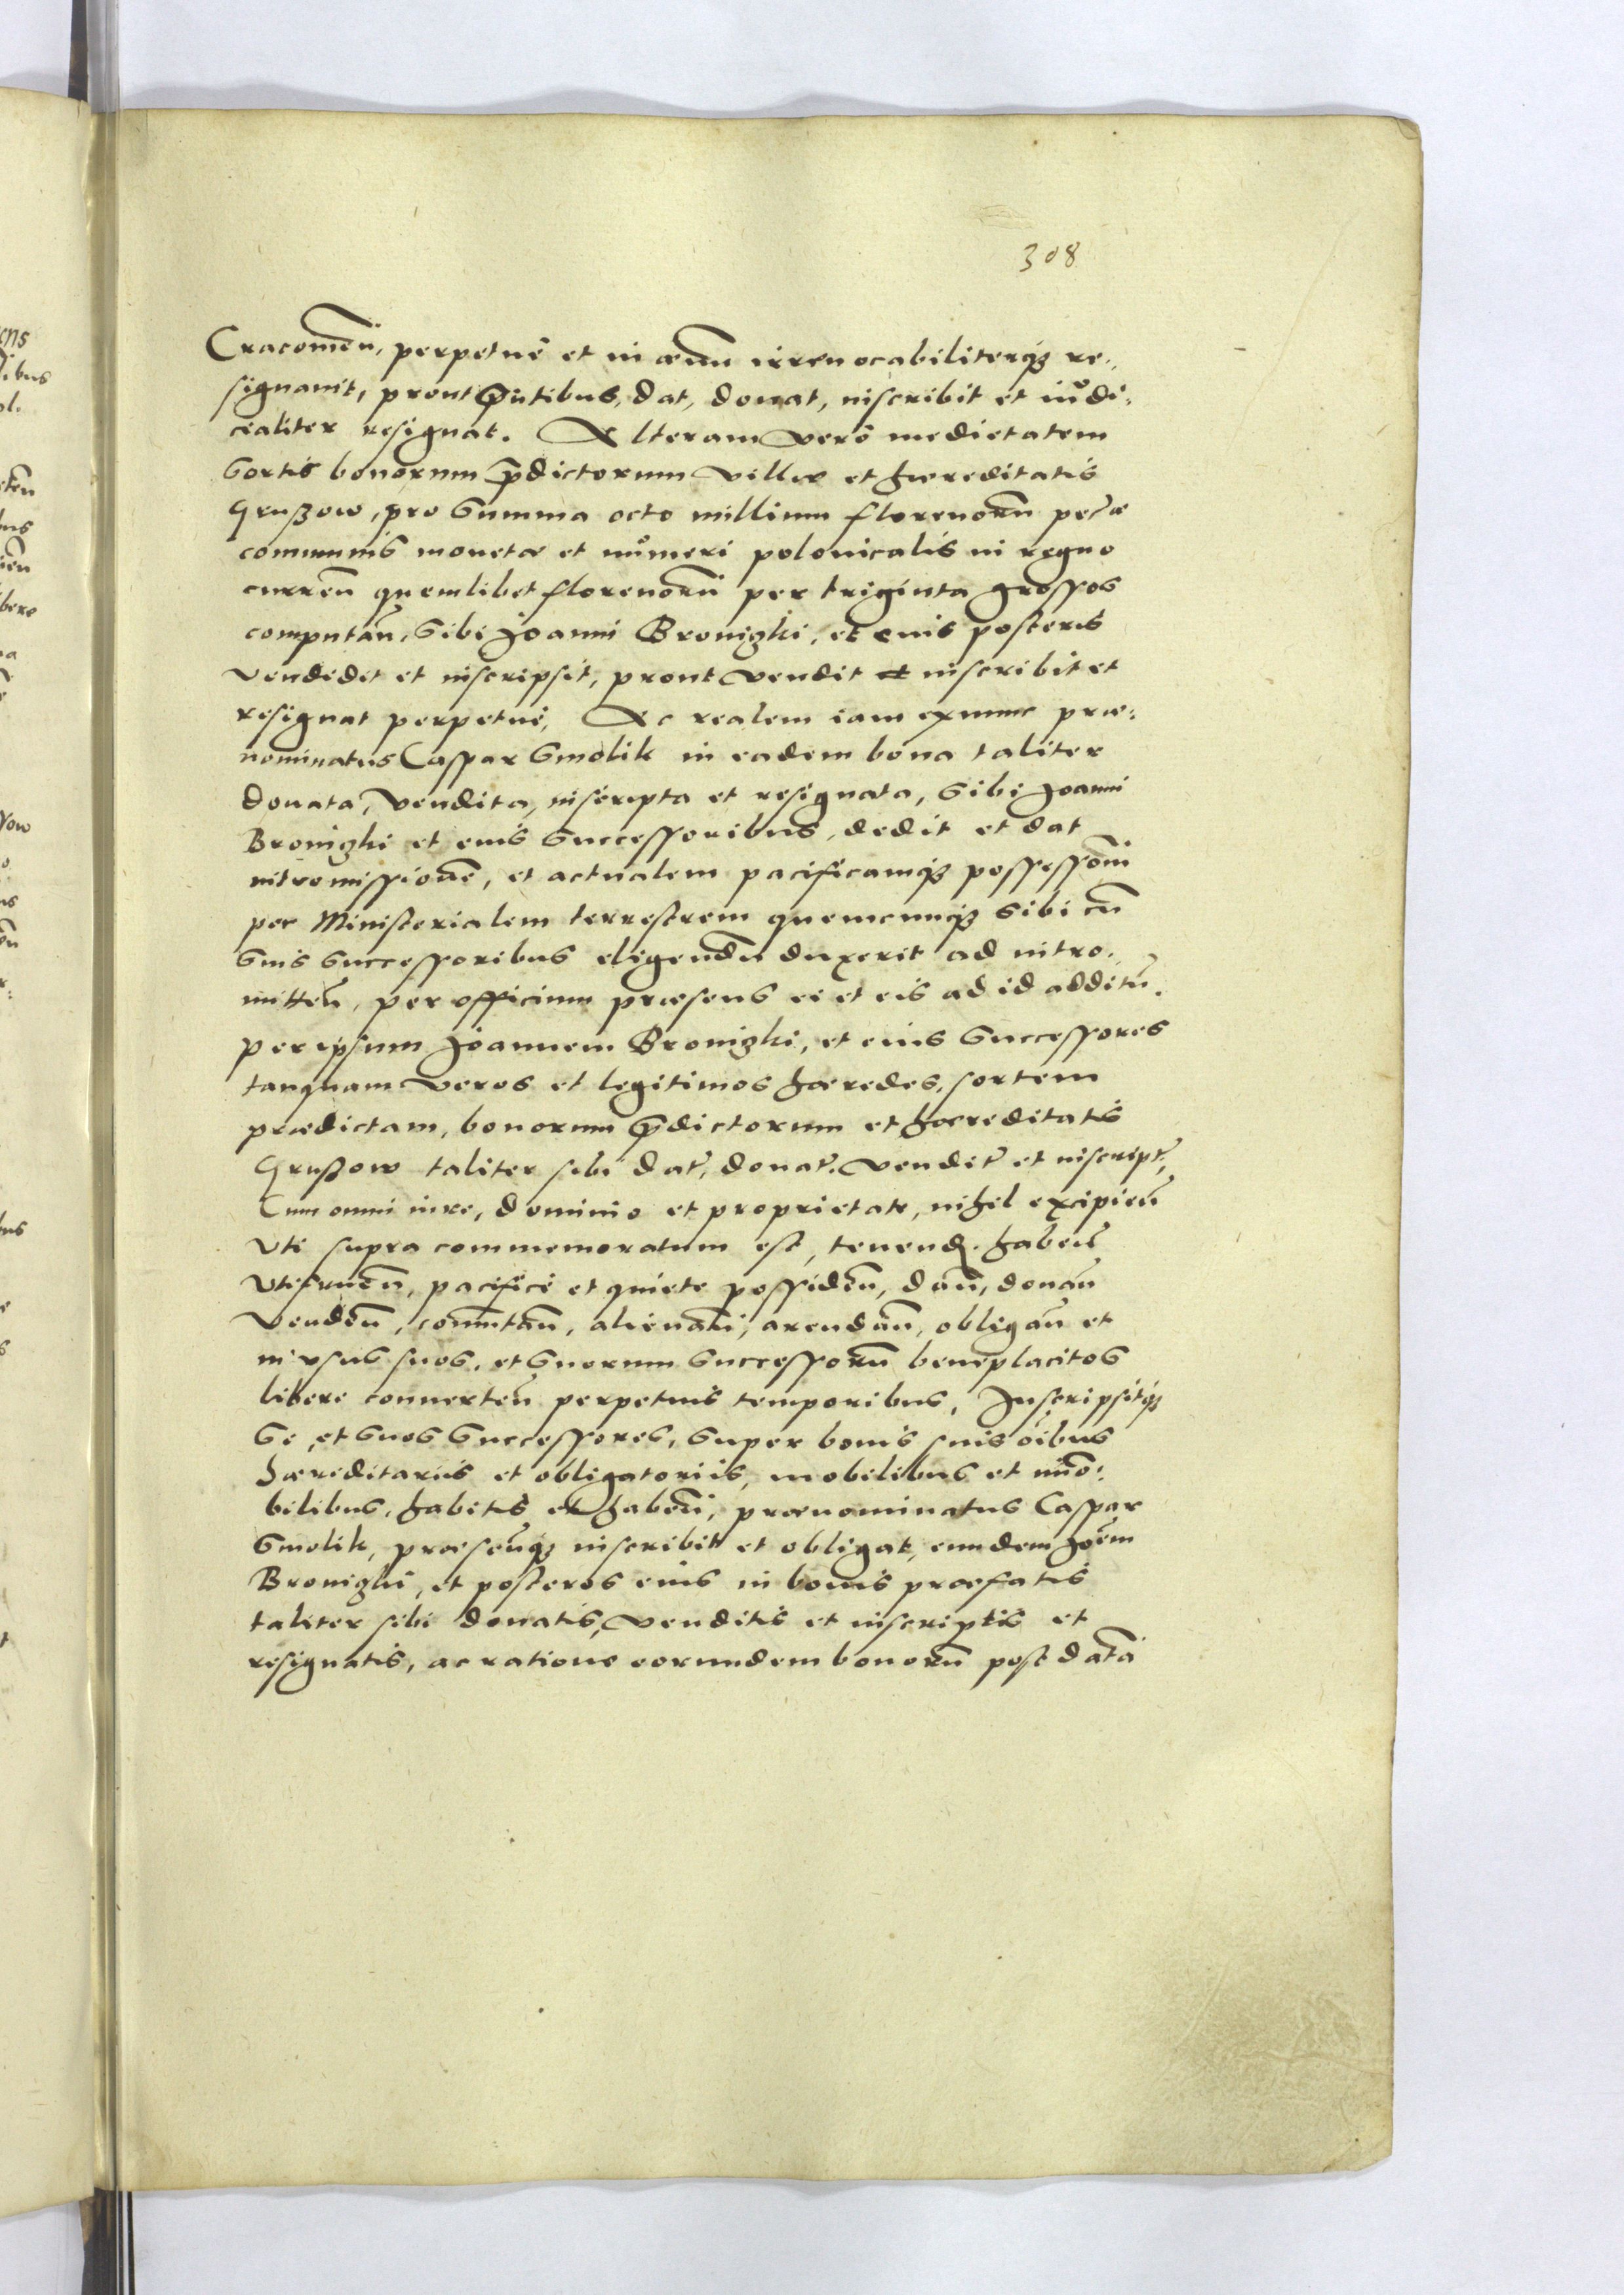 308
Cracouien̄, perpetuè et in aeuum irreuocabiliterq̃ꝫ re,
signauit, prout p̄ntibus, dat, donat, inscribit et iudi,
cialiter resignat. Alteram verò medietatem
sortis bonorum p̄dictorum villæ et hæreditatis
Grußow, pro summa octo millium florenorū pec̄æ
communis monetæ et numeri polonicalis in regno
curreñ quemlibet florenorū per triginta grossos
computañ, sibi Joanni Bronighi, et euis posteris
vendidit et inscripsit, prout vendit et inscribit et
resignat perpetuè, Ac realem iam exnunc præ,
nominatus Caspar Smolik in eadem bona taliter
donata, vendita, inscripta et resignata, sibi Joanni
Bronighi et euis successoribus, dedit et dat
intromissionē, et actualem pacificamq̃ꝫ possessionē
per Ministerialem terrestrem quemcunq̃ꝫ sibi cū
suis successoribus eligendū duxerit ad intro,
mitteñ, per officium præsens ei et eis ad id additū.
per ipsum Joannem Bronighi, et eius successores
tanquam veros et legitimos hæredes, sortem
prædictam, bonorum p̄dictorum et hæreditatis
Grußow taliter sibi dat̄, donat̄. vendit̄ et inscript̄,
Cum omni iure, dominio et proprietate, nihil excipieñ
vti supra commemoratum est, tenend. habeñ
vtifrueñ, pacificè et quiete possideñ, dañ, donañ
vendeñ, com̄utañ, alienañ, arendañ, obligañ et
in vsus suos, et suorum successorū beneplacitos
liberè conuerteñ perpetuis temporibus, Inscripsitq̃ꝫ
se, et suos successores, super bonis suis oībus
hæreditariis et obligatoriis, mobilibus et im̄o,
bilibus, habitis et habeñ, prænominatus Caspar
Smolik, præseñq̃ꝫ inscribit et obligat, eundem Joēm
Bronighi, et posteros eius in bonis præfatis
taliter sibi donatis, venditis et inscriptis et
resignatis, ac ratione eorundem bonorū post datā